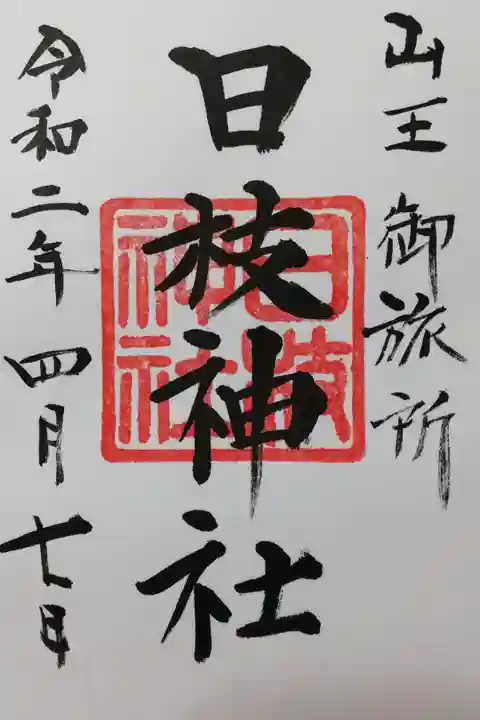 山王 御旅所
日枝神社
日枝
神社
令和二年四月七日